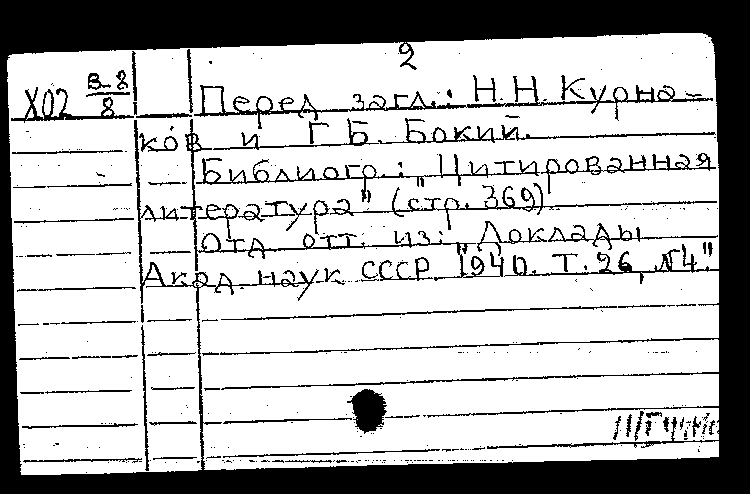 2
Х02 В-8/8 Перед загл.: Н.Н. Курна-
ков и Г.Б. Бокий.
Библиогр.: "Цитированная
литература" (стр. 369)
Отд. отт. из: "Доклады
Акад. наук СССР. 1940. Т. 26, №4."